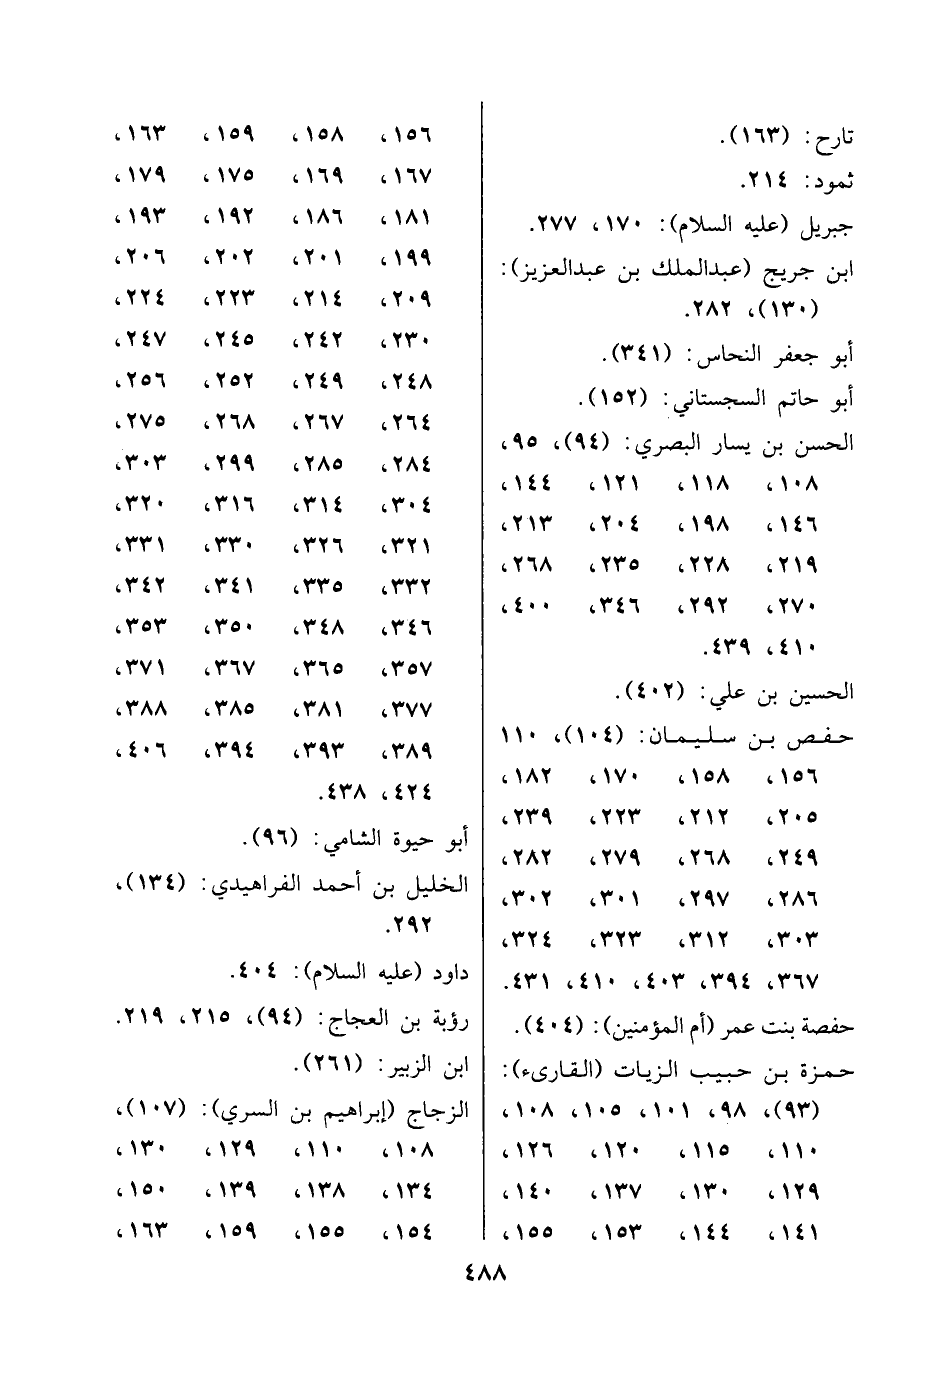 تارح: (١٦٣).
ثمود: ٢١٤.
جبريل (عليه السلام): ١٧٠، ٢٧٧.
ابن جريج (عبدالملك بن عبدالعزيز):
(١٣٠)، ٢٨٢.
أبو جعفر النحاس: (٣٤١).
أبو حاتم السجستاني: (١٥٢).
الحسن بن يسار البصري: (٩٤)، ٩٥،
١٠٨، ١١٨، ١٢١، ١٤٤،
١٤٦، ١٩٨، ٢٠٤، ٢١٣،
٢١٩، ٢٢٨، ٢٣٥، ٢٦٨،
٢٧٠، ٢٩٢، ٣٤٦، ٤٠٠،
٤١٠، ٤٣٩.
الحسين بن علي: (٤٠٢).
حفص بن سليمان: (١٠٤)، ١١٠
١٥٦، ١٥٨، ١٧٠، ١٨٢،
٢٠٥، ٢١٢، ٢٢٣، ٢٣٩،
٢٤٩، ٢٦٨، ٢٧٩، ٢٨٢،
٢٨٦، ٢٩٧، ٣٠١، ٣٠٢،
٣٠٣، ٣١٢، ٣٢٣، ٣٢٤،
٣٦٧، ٣٩٤، ٤٠٣، ٤١٠، ٤٣١.
حفصة بنت عمر (أم المؤمنين): (٤٠٤).
حمزة بن حبيب الزيات (القارىء):
(٩٣)، ٩٨، ١٠١، ١٠٥، ١٠٨،
١١٠، ١١٥، ١٢٠، ١٢٦،
١٢٩، ١٣٠، ١٣٧، ١٤٠،
١٤١، ١٤٤، ١٥٣، ١٥٥،
١٥٦، ١٥٨، ١٥٩، ١٦٣،
١٦٧، ١٦٩، ١٧٥، ١٧٩،
١٨١، ١٨٦، ١٩٢، ١٩٣،
١٩٩، ٢٠١، ٢٠٢، ٢٠٦،
٢٠٩، ٢١٤، ٢٢٣، ٢٢٤،
٢٣٠، ٢٤٢، ٢٤٥، ٢٤٧،
٢٤٨، ٢٤٩، ٢٥٢، ٢٥٦،
٢٦٤، ٢٦٧، ٢٦٨، ٢٧٥،
٢٨٤، ٢٨٥، ٢٩٩، ٣٠٣،
٣٠٤، ٣١٤، ٣١٦، ٣٢٠،
٣٢١، ٣٢٦، ٣٣٠، ٣٣١،
٣٣٢، ٣٣٥، ٣٤١، ٣٤٢،
٣٤٦، ٣٤٨، ٣٥٠، ٣٥٣،
٣٥٧، ٣٦٥، ٣٦٧، ٣٧١،
٣٧٧، ٣٨١، ٣٨٥، ٣٨٨،
٣٨٩، ٣٩٣، ٣٩٤، ٤٠٦،
٤٢٤، ٤٣٨.
أبو حيوة الشامي: (٩٦).
الخليل بن أحمد الفراهيدي: (١٣٤)،
٢٩٢.
داود (عليه السلام): ٤٠٤.
رؤبة بن العجاج: (٩٤)، ٢١٥، ٢١٩.
ابن الزبير: (٢٦١).
الزجاج (إبراهيم بن السري): (١٠٧)،
١٠٨، ١١٠، ١٢٩، ١٣٠،
١٣٤، ١٣٨، ١٣٩، ١٥٠،
١٥٤، ١٥٥، ١٥٩، ١٦٣،
٤٨٨